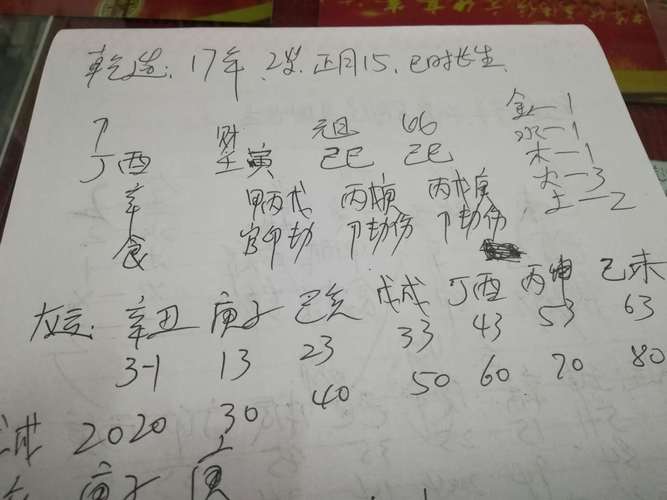 乾造：17年、2岁、正月15、巳时长生
金—1
卩 财 元旦 比
水—1
丁酉 壬寅 己巳 己巳
木—1
火—3
辛 甲丙戊 丙戊庚 丙戊庚
土—2
食 官卩劫 卩劫伤 卩劫伤
大运：辛丑 庚子 己亥 戊戌 丁酉 丙申 己未
3-1 13 23 33 43 53 63
2020 30 40 50 60 70 80
庚子